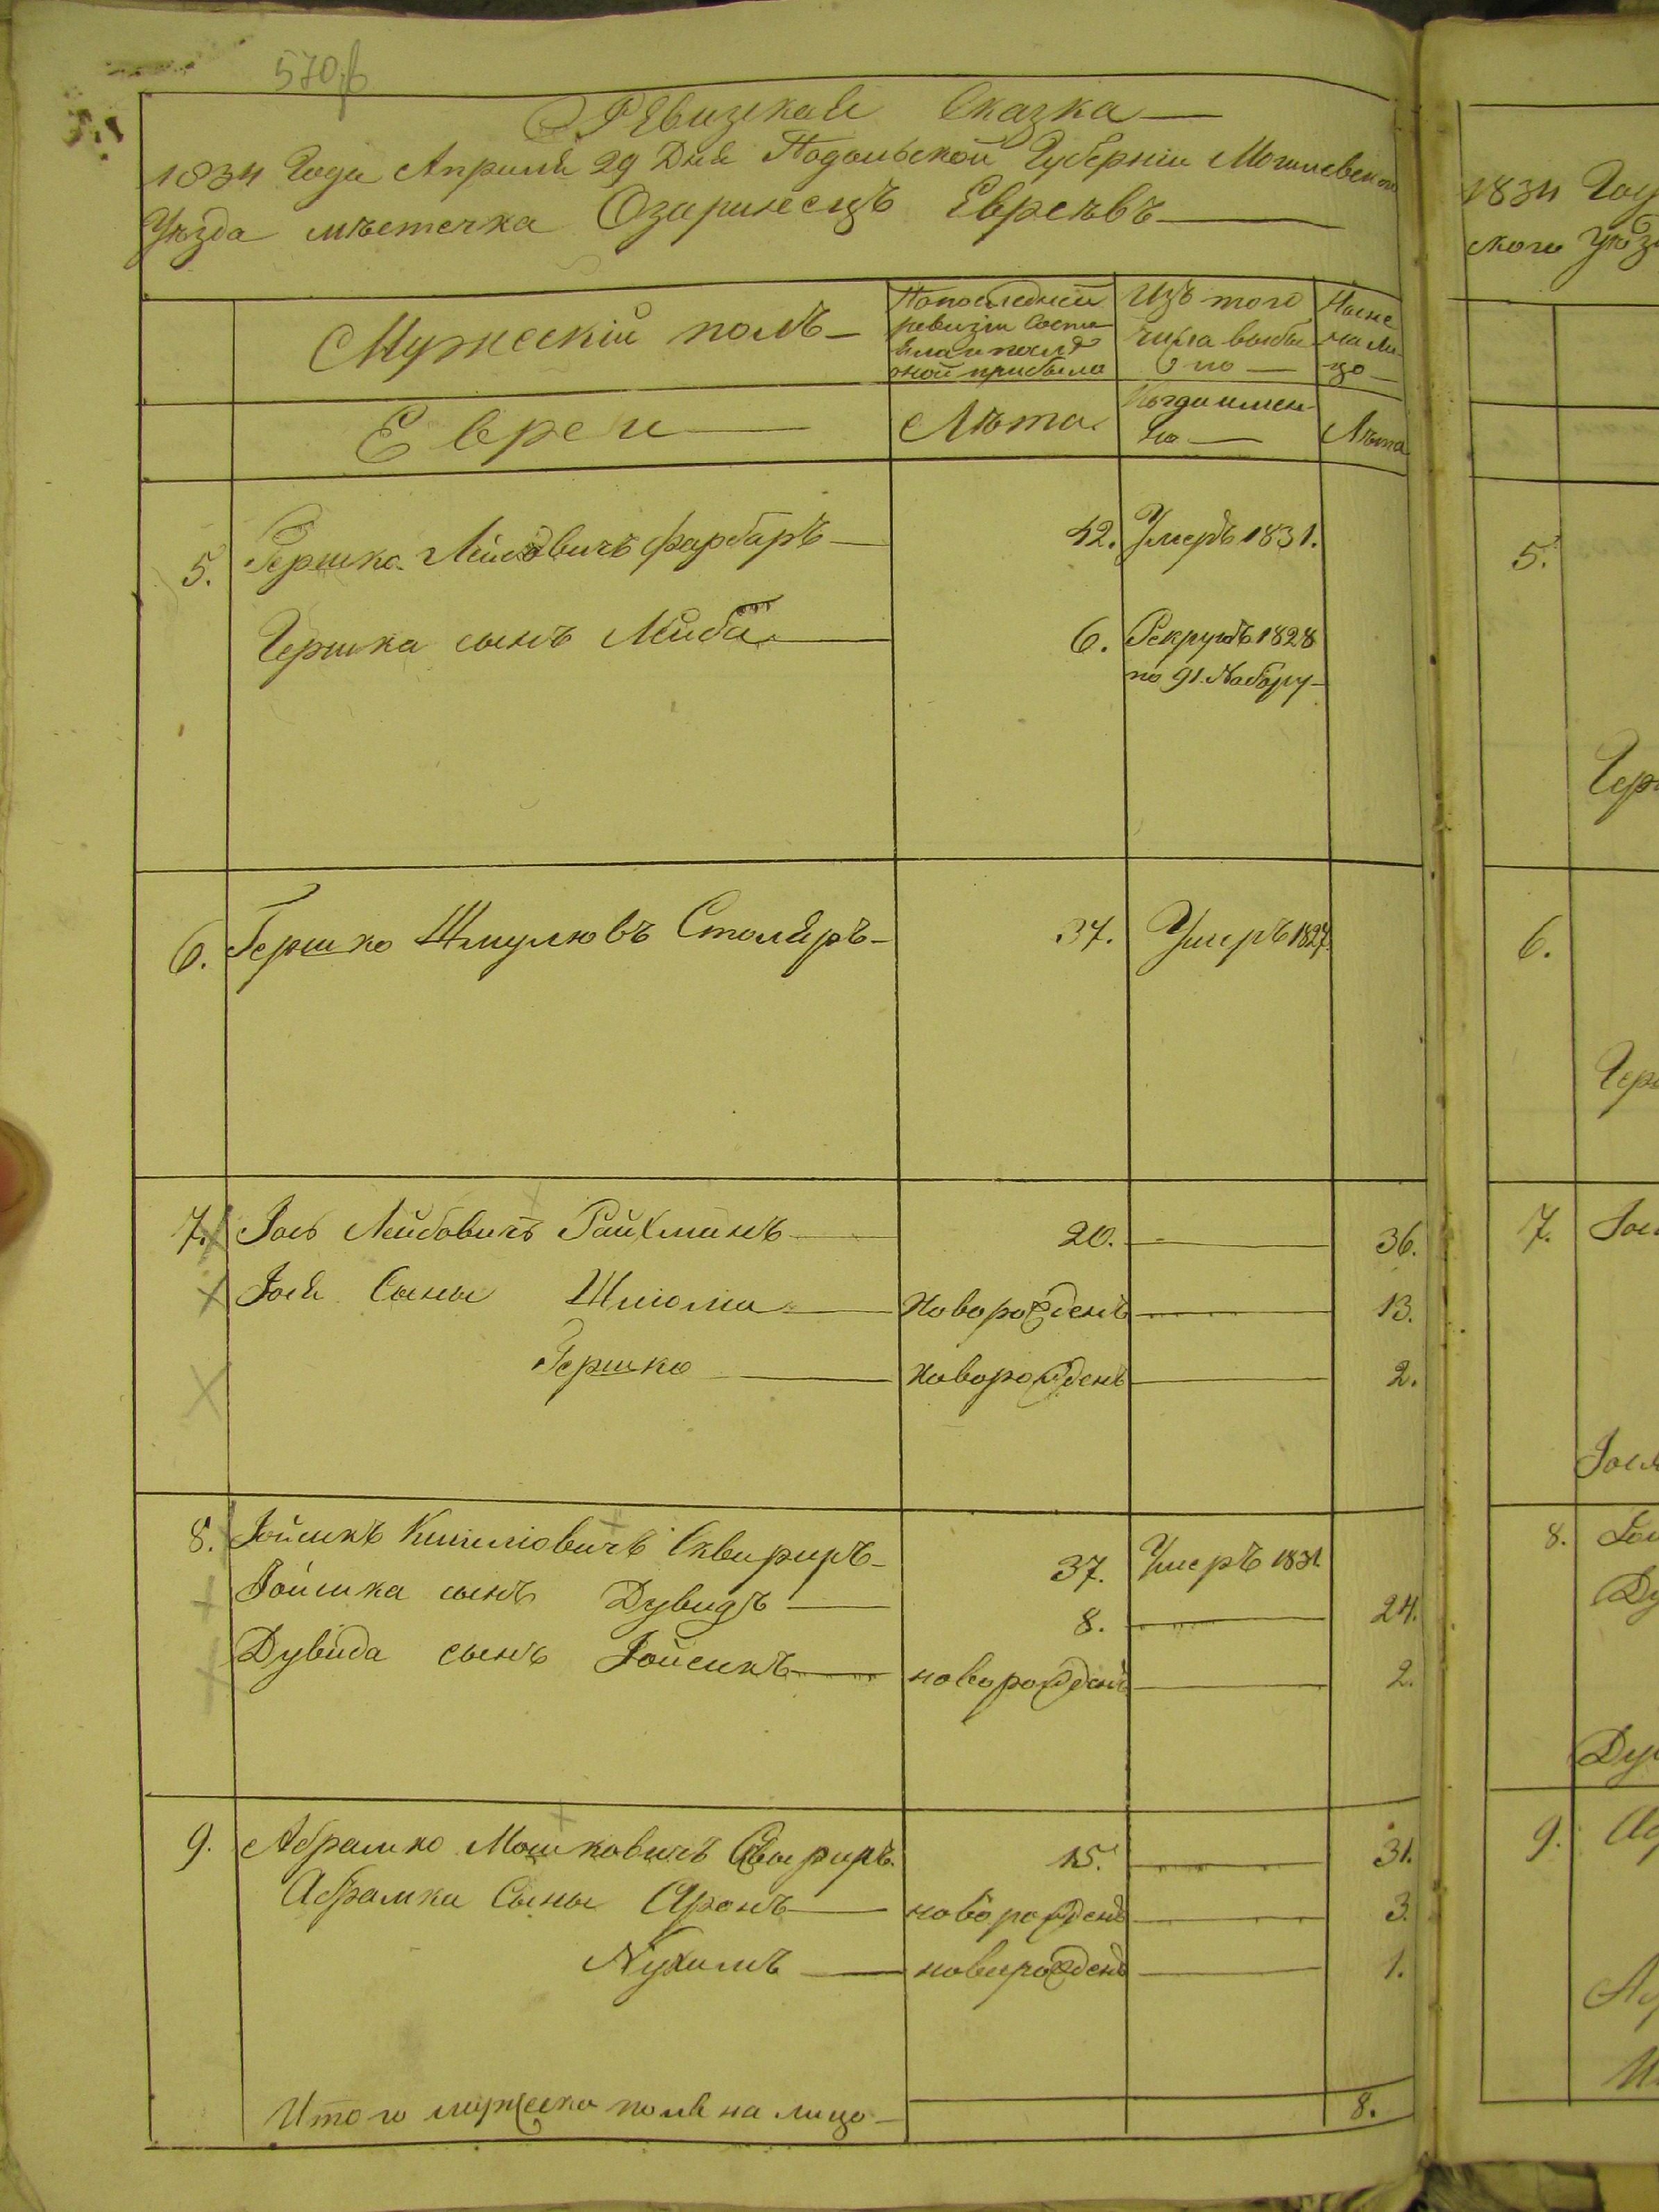 570
Ревизкая Сказка
1834 Года Апреля 29 Дня Подольской Губерніи Могилевской
Уѣзда мѣстечка Озаринецъ Евреѣвъ
Мужескій полъ
По последней
ревизіи состо
яло и послѣ
оной прибыло
Изъ того
числа выбы
ло
Ныне
на ли
цо
Евреи
Лѣта
Когда имен
но
Лѣта
5. Гершко Лейбовичъ Фарбаръ 42. Умеръ 1831.
Гершка сынъ Лейба 6. Рекрутъ 1828
по 91. Набору
6. Гершко Шмулювъ Столяръ 37. Умеръ 1827.
7. Іось Лейбовичъ Райхманъ 20. 36.
Іося Сыны Шліома новорожденъ 13.
Гершко новорожденъ 2.
8. Іойсикъ Кипліовичъ Сквириръ 37. Умеръ 1831
Іойсика сынъ Дувидъ 8. 24.
Дувида сынъ Іойсикъ новорожденъ 2.
9. Абрамко Мошковичъ Сквириръ 15. 31.
Абрамка Сыны Аронъ новорожденъ 3.
Нухимъ новорожденъ 1.
Итого мужеска пола на лицо 8.
1834 Году
ского Уѣз
5.
Гер
6.
Гер
7. Іос
Іося
8. Іой
Ду
Дув
9. Аб